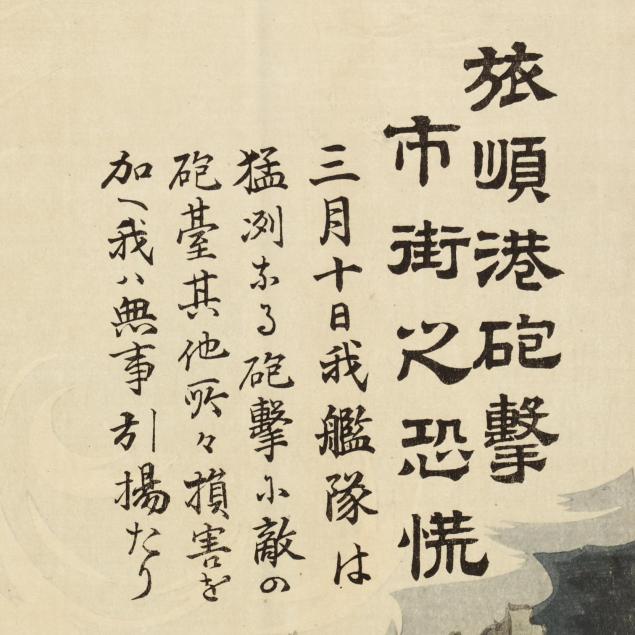 旅順港砲撃
市街之恐慌
三月十日我艦隊は
猛烈なる砲撃に敵の
砲臺其他所々損害を
加へ我ハ無事引揚たり